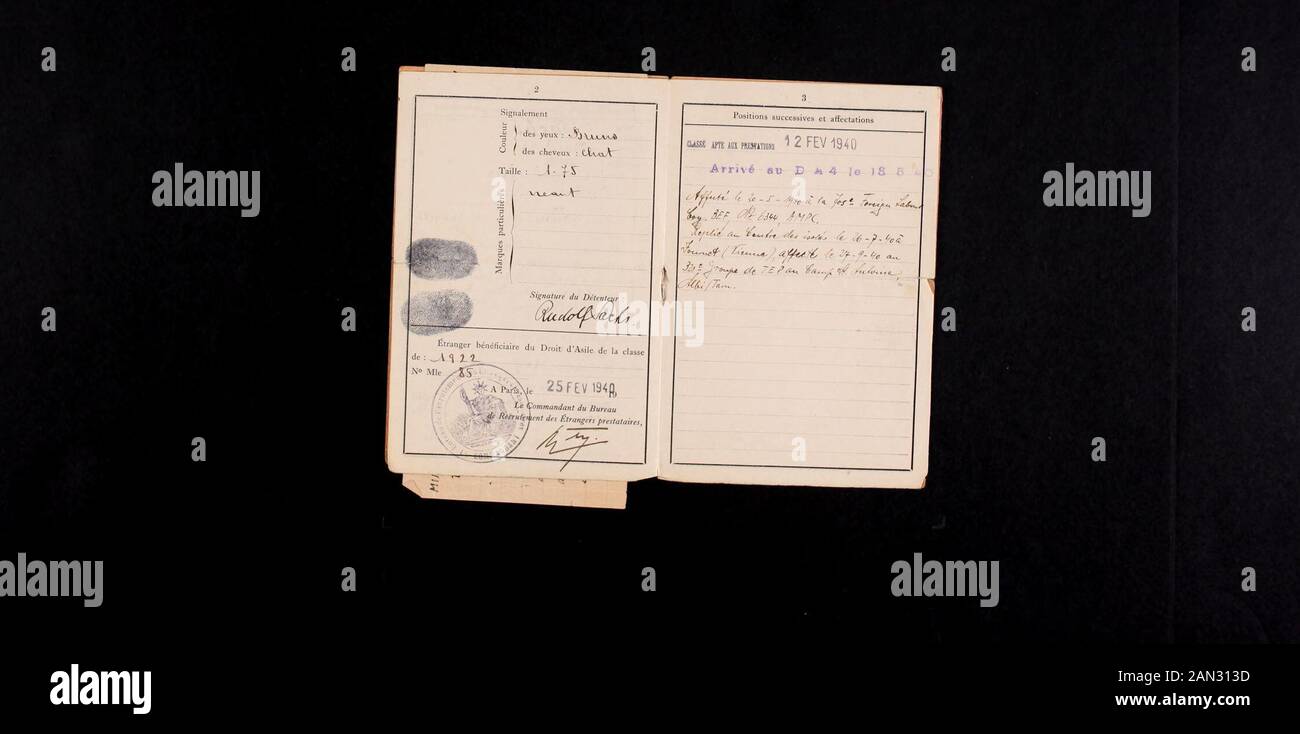 2
Signalement
Couleur
des yeux : Bruns
des cheveux : chat
Taille : 1.78
Marques particulières
neant
Signature du Détenteur
Rudolf Sachs.
Étranger bénéficiaire du Droit d'Asile de la classe
de : 1922
Nº Mle 85
A Paris, le 25 FEV 1940
Le Commandant du Bureau
de Recrutement des Étrangers prestataires,
3
Positions successives et affectations
CLASSÉ APTE AUX PRESTATIONS 12 FEV 1940
Arrivé au D A 4 le 18 5 40
Affecté le 20-5-1940 à la Foreign Labour
Coy. BEF 6344 AMPC.
Replié au Centre des isolés le 26-7-40 à
(Vienne) affecté le 27-9-40 au
Groupe de T E au Camp St Antoine,
Albi / Tarn.
alamy
Image ID: 2AN313D
www.alamy.com
a
a
a
a
a
alamy
a
alamy
a
a
a
a
a
alamy
a
a
alamy
a